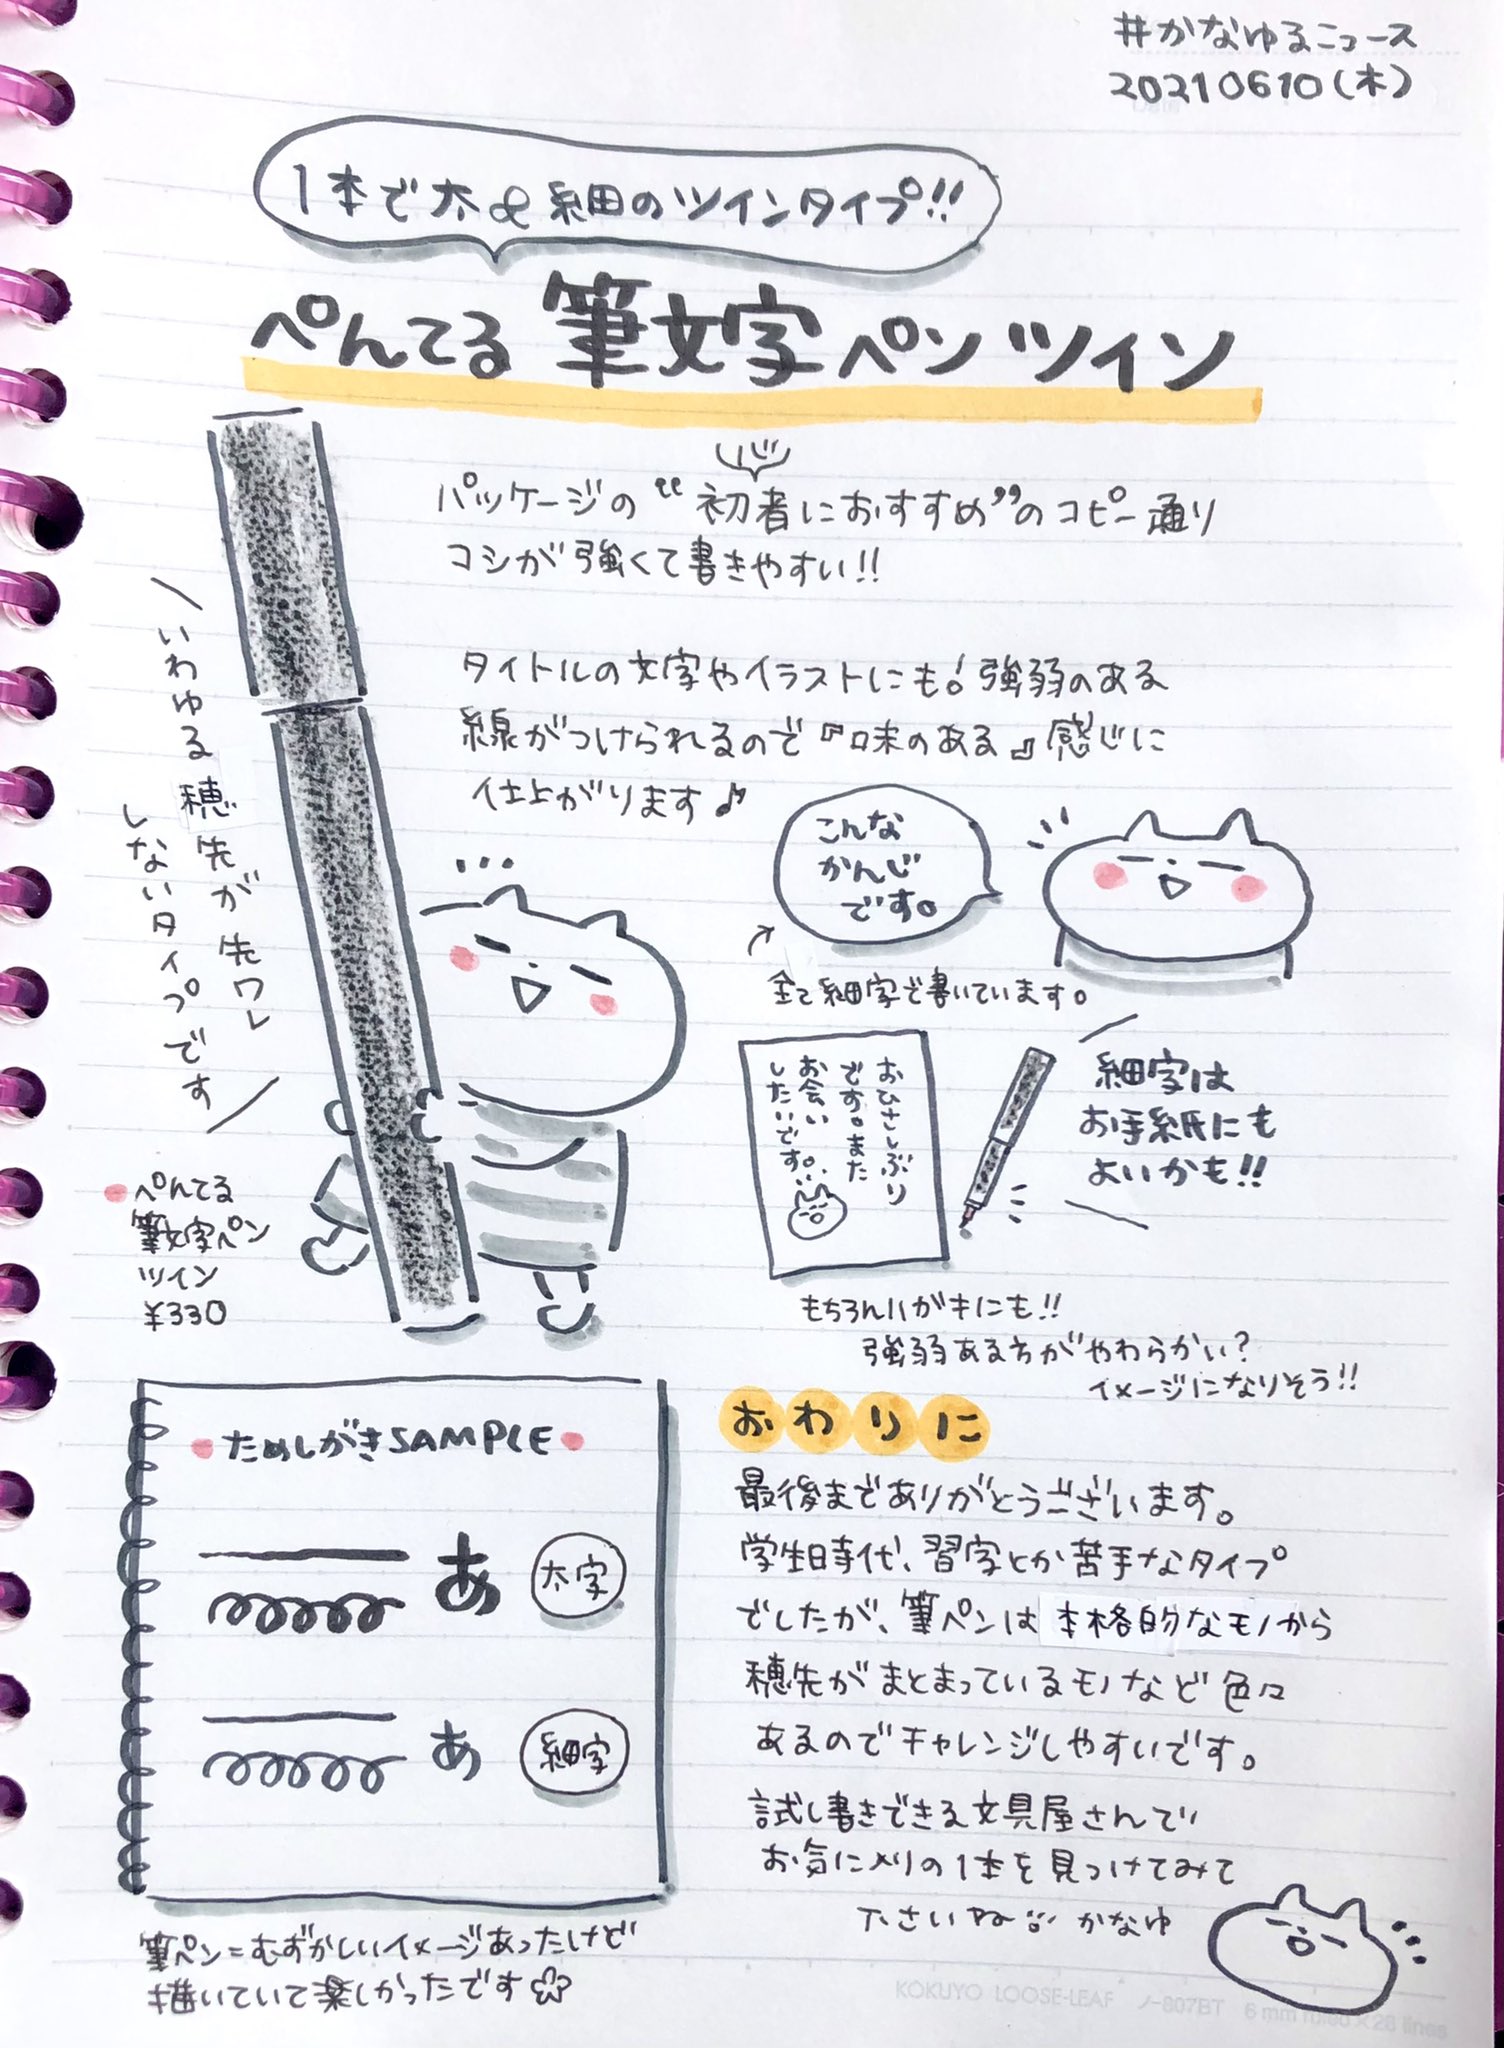 #かなゆるニュース
20210610(木)
1本で太&細のツインタイプ!!
ぺんてる筆文字ペンツイン
パッケージの“初心者におすすめ”のコピー通り
コシが強くて書きやすい!!
タイトルの文字やイラストにも!強弱のある
線がつけられるので『味のある』感じに
仕上がります♪
いわゆる穂先が先ワレ
しないタイプです
こんな
かんじ
です。
全て細字で書いています。
おひさしぶり
です。また
お会い
したいです。
細字は
お手紙にも
よいかも!!
もちろんハガキにも!!
強弱ある方がやわらかい?
イメージになりそう!!
ぺんてる
筆文字ペン
ツイン
¥330
ためしがきSAMPLE
あ 太字
あ 細字
筆ペン=むずかしいイメージあったけど
描いていて楽しかったです
おわりに
最後までありがとうございます。
学生時代、習字とか苦手なタイプ
でしたが、筆ペンは本格的なモノから
穂先がまとまっているモノなど色々
あるのでチャレンジしやすいです。
試し書きできる文具屋さんで
お気に入りの1本を見つけてみて
下さいね かなゆ
KOKUYO LOOSE-LEAF ノ-807BT 6 mm ruled×28 lines